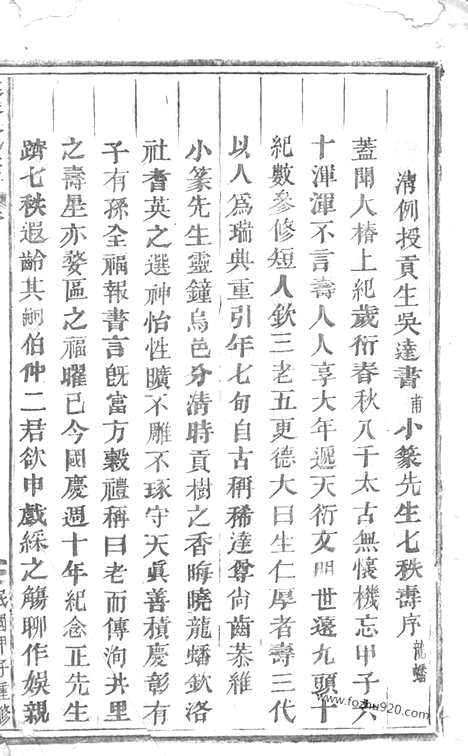 清例授貢生吳達書甫小篆先生七秩壽序 龍蟠
蓋聞大椿上紀歲衍春秋八千太古無懷機忘甲子六
十渾渾不言壽人人享大年遞天衍文門世遠九頭十
紀數參修短人欽三老五更德大曰生仁厚者壽三代
以人為瑞典重引年七旬自古稱稀達尊尙齒恭維
小篆先生靈鐘烏邑分淸時貢樹之香晦曉龍蟠欽洛
社耆英之選神怡性曠不雕不琢守天眞善積慶彰有
子有孫全福報書言旣富方穀禮稱曰老而傳洵井里
之壽星亦婺區之福曜已今國慶週十年紀念正先生
躋七秩遐齡其嗣伯仲二君欲申戲綵之觴聊作娛親
民國甲子重修
www.fozhu920.com